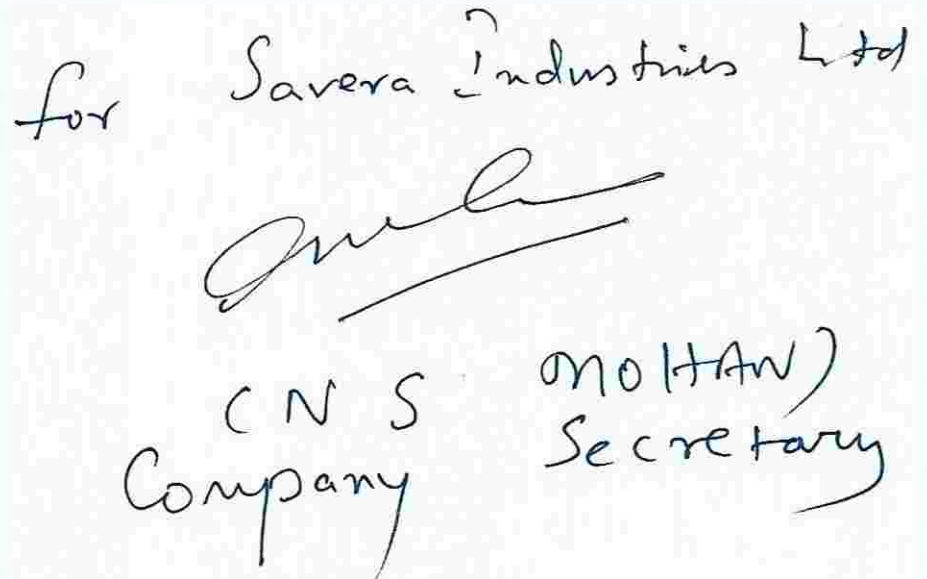 for Savera Industries Ltd
(N S MOHAN)
Company Secretary